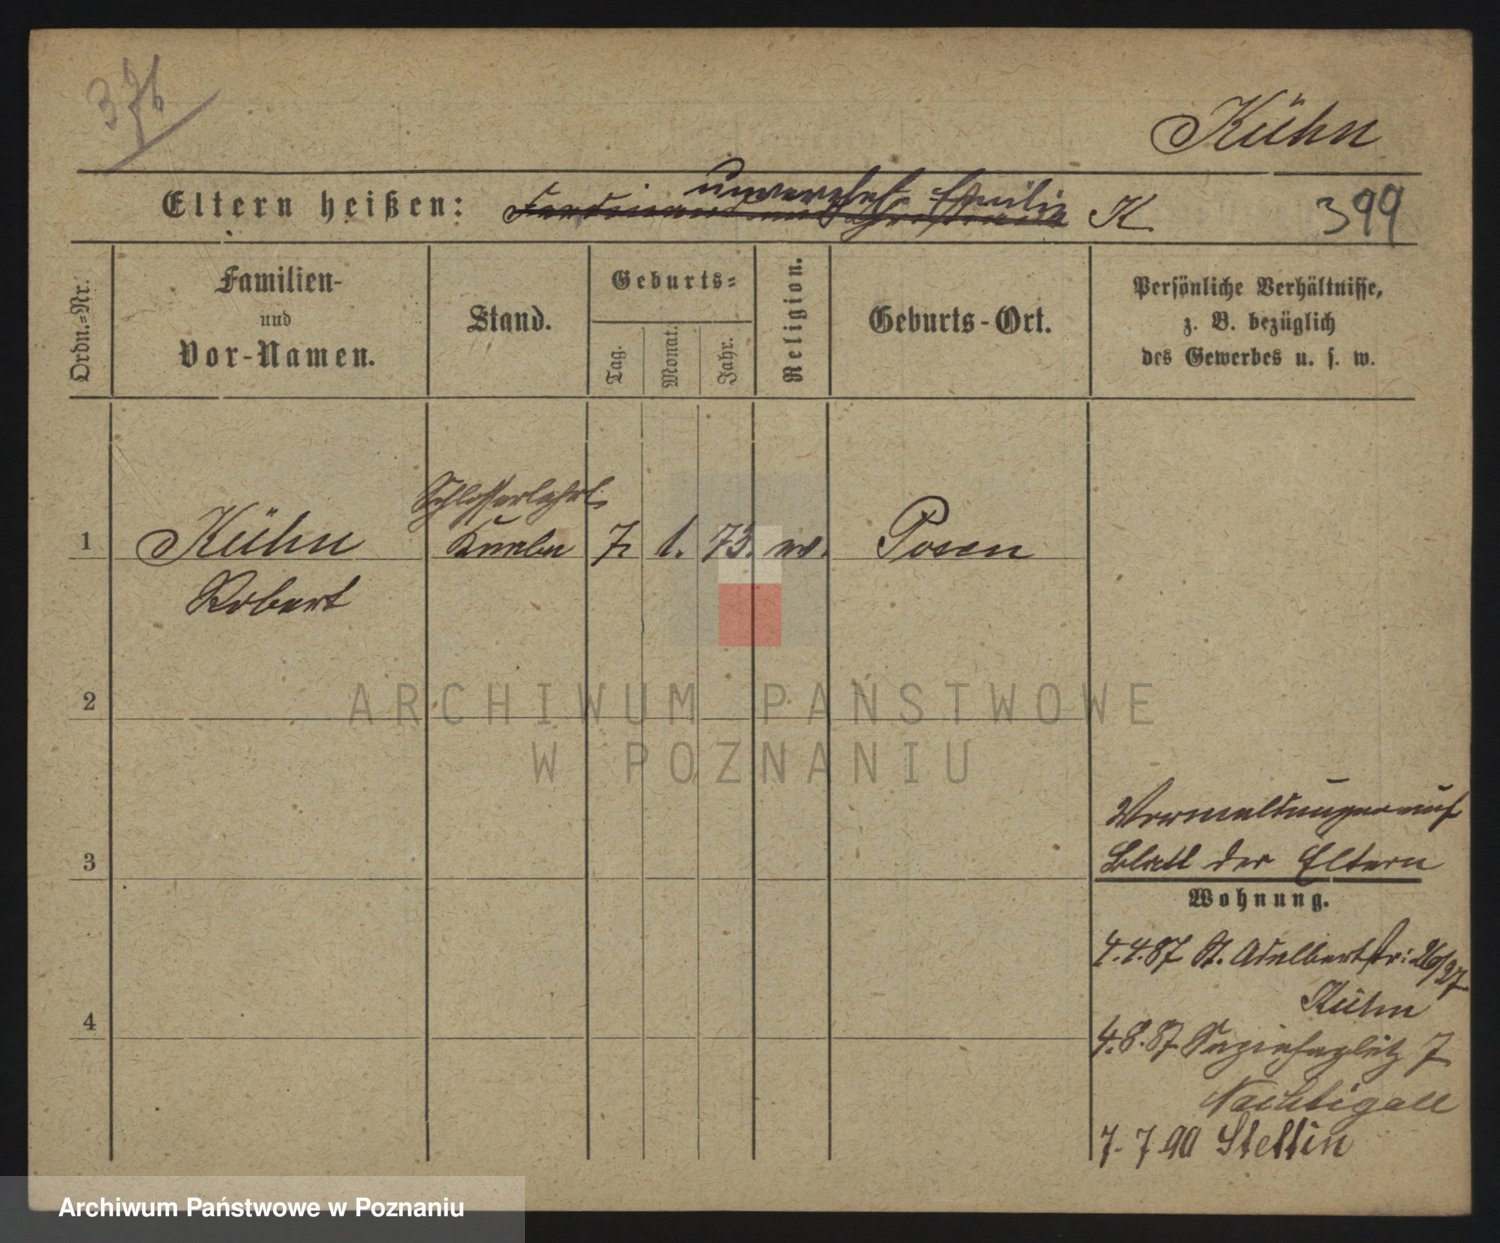 376
Kühn
Eltern heißen: unverehel. Emilie K
399
Ordn.-Nr.
Familien-
und
Vor-Namen.
Stand.
Geburts-
Tag.
Monat.
Jahr.
Religion.
Geburts-Ort.
Persönliche Verhältnisse,
z. B. bezüglich
des Gewerbes u. s. w.
Schlosserlehrl.
1 Kühn Knabe 7. 1. 73. ev. Posen
Robert
2
ARCHIWUM PAŃSTWOWE
W POZNANIU
3
Vormeldungen auf
Blatt der Eltern
Wohnung.
4.4.87 St. Adalbertstr: 26/27
Kühn
4
4.8.87 Sapiehaplatz 7
Nachtigall
7. 7 90 Stettin
Archiwum Państwowe w Poznaniu